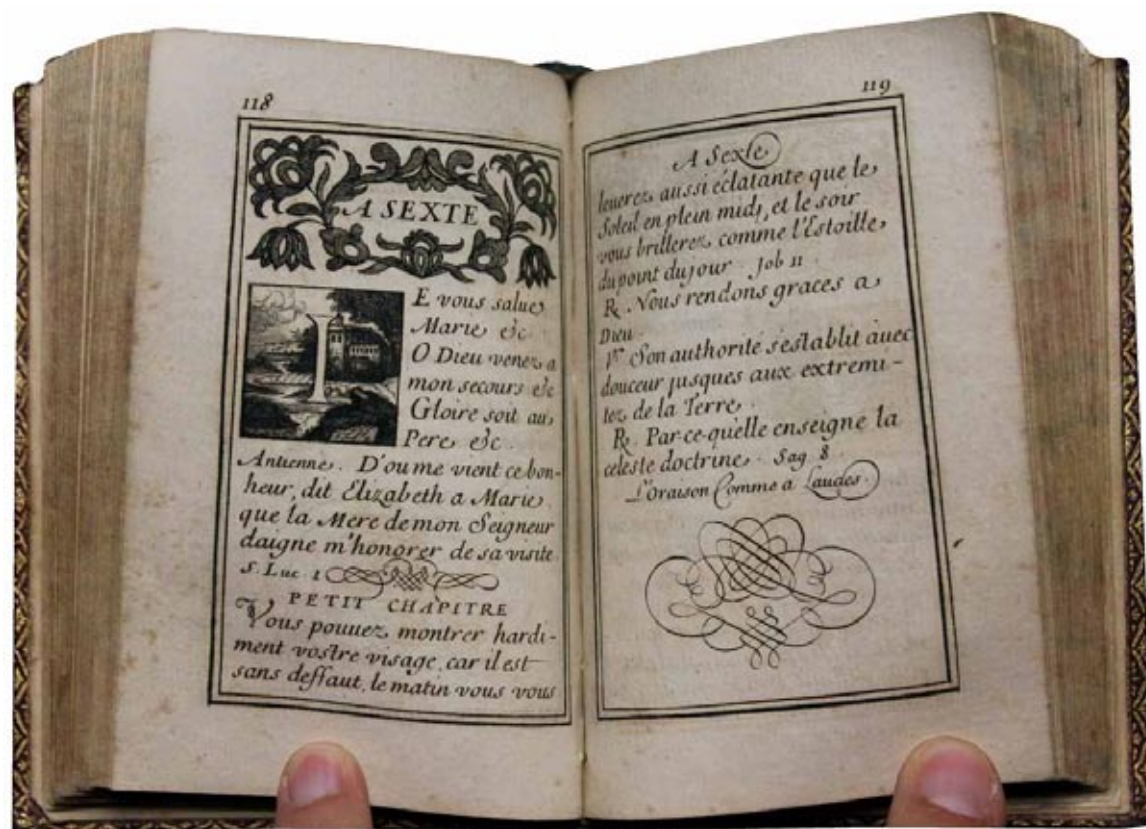 118
A SEXTE
IE vous salue
Marie &c
O Dieu venez a
mon secours &c
Gloire soit au
Pere &c.
Antienne. D'ou me vient ce bon-
heur, dit Elizabeth a Marie
que la Mere de mon Seigneur
daigne m'honorer de sa visite
S. Luc. 1
PETIT CHAPITRE
Vous pouuez montrer hardi-
ment vostre visage, car il est
sans deffaut, le matin vous vous
119
A Sexte
leuerez aussi éclatante que le
Soleil en plein midi, et le soir
vous brillerez comme l'Estoille
du point du jour. Job 11.
℟. Nous rendons graces a
Dieu.
℣. Son authorité s'establit auec
douceur jusques aux extremi-
tez de la Terre.
℟. Par-ce-quelle enseigne la
celeste doctrine. Sag 8.
L'Oraison Comme a Laudes.